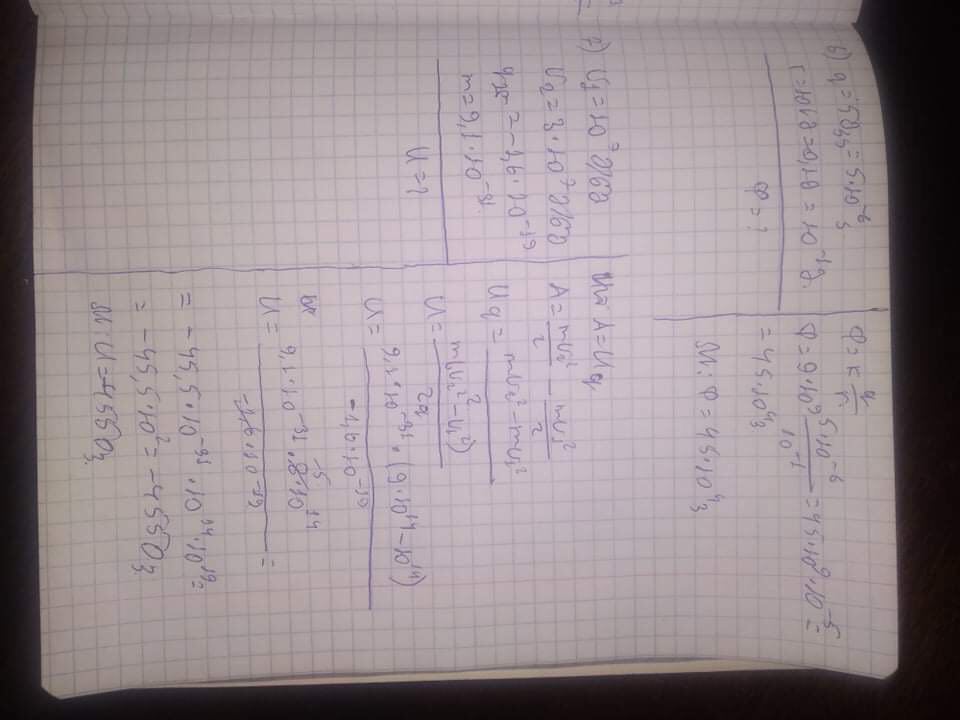 6) q = 5მკკ = 5·10⁻⁶ კ
r = 10სმ = 0,1მ = 10⁻¹მ
φ = ?
φ = k q/r
φ = 9·10⁹ 5·10⁻⁶/10⁻¹ = 45·10⁹·10⁻⁵ =
= 45·10⁴ვ
φ = 45·10⁴ვ
7) υ₁ = 10⁷ მ/წმ
υ₂ = 3·10⁷ მ/წმ
q = -1,6·10⁻¹⁹
m = 9,1·10⁻³¹
U = ?
A = Uq
A = mυ₂²/2 - mυ₁²/2
Uq = mυ₂² - mυ₁²/2
U = m(υ₂² - υ₁²)/2q
U = 9,1·10⁻³¹·(9·10¹⁴ - 10¹⁴)/-1,6·10⁻¹⁹
U = 9,1·10⁻³¹·8·10¹⁴/-1,6·10⁻¹⁹ =
= -45,5·10⁻³¹·10¹⁴·10¹⁹ =
= -45,5·10² = -4550ვ
U = 4550ვ